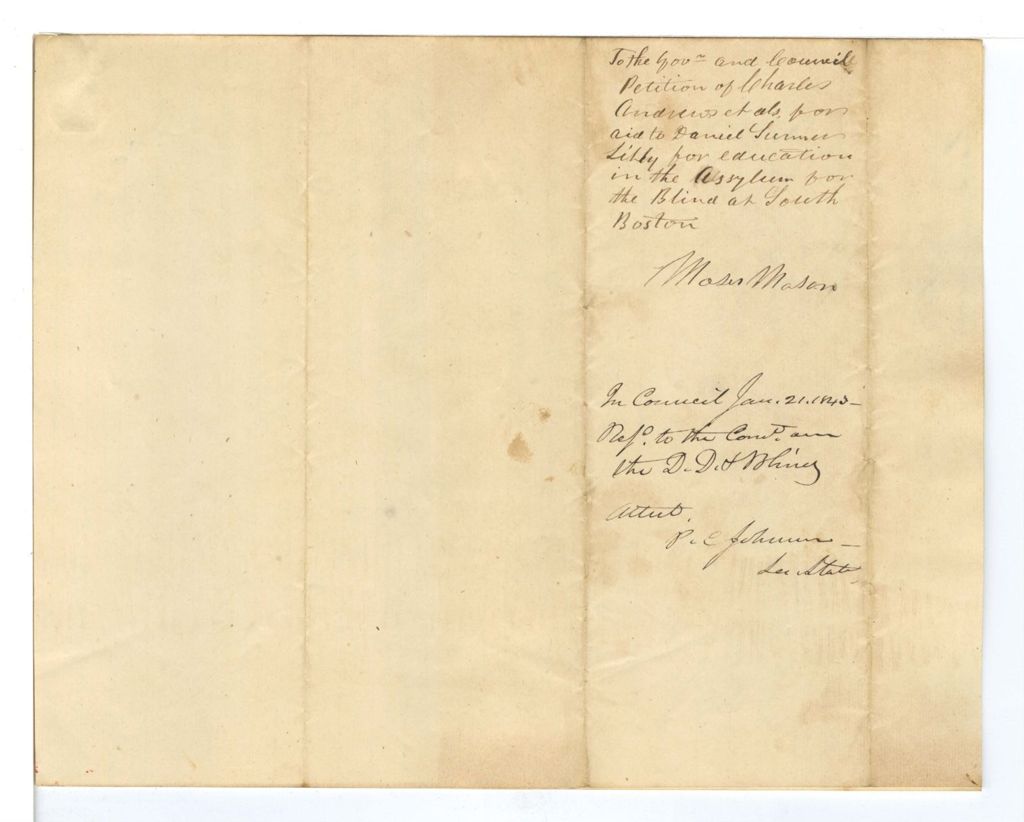 To the Govr and Council
Petition of Charles
Andrews et als. for
aid to Daniel Sumner
Libby for education
in the Assylum for
the Blind at South
Boston
Moses Mason
In Council Jan. 21. 1843—
Refd. to the Come. on
the D. D. & Blind
Attest.
P. C. Johnson —
Sec. State